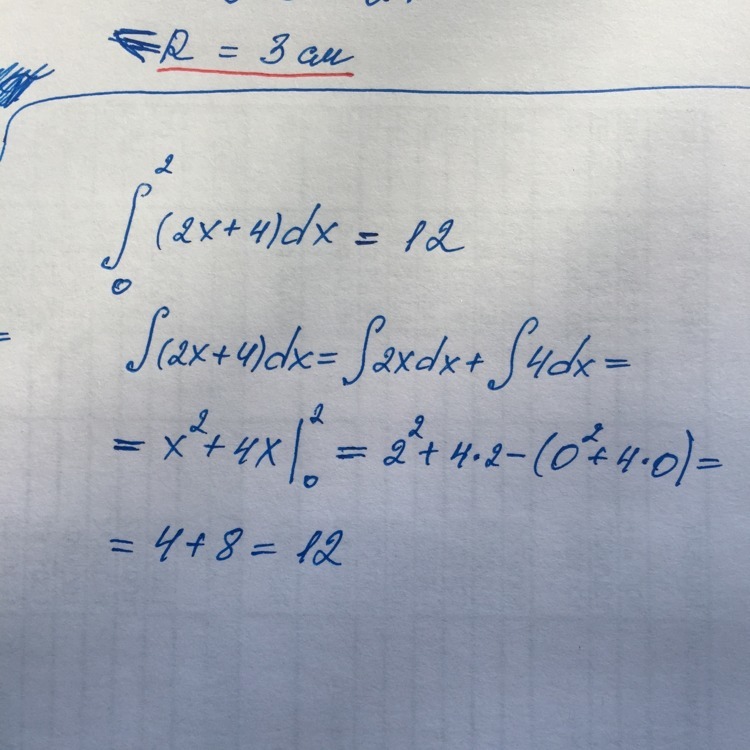 R = 3 см
∫₀² (2x+4)dx = 12
=
∫(2x+4)dx = ∫2xdx + ∫4dx =
= x² + 4x |₀² = 2² + 4·2 - (0² + 4·0) =
= 4 + 8 = 12